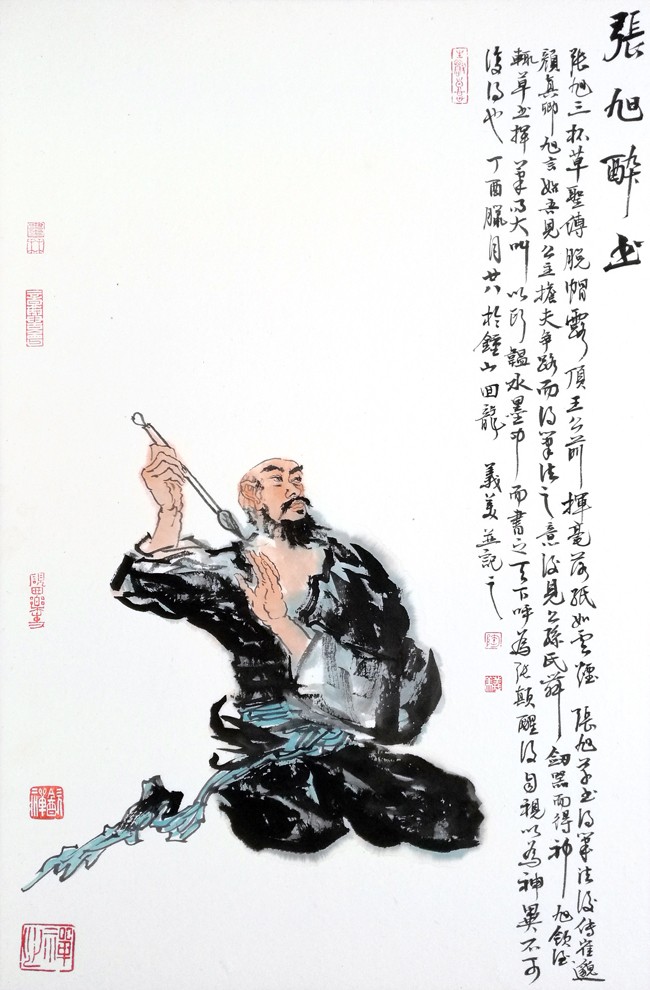 張旭醉书
張旭三杯草聖傳脫帽露頂王公前揮毫落紙如雲煙 張旭草书得筆法後傳崔邈
顏真卿旭言始吾見公主擔夫爭路而得筆法之意後見公孫氏舞劍器而得神旭飲酒
輒草书揮筆而大叫以頭韞水墨中而書之天下呼為張顛醒後自視以為神異不可
復得也 丁酉臘月廿八於鍾山回龍 義美並記之